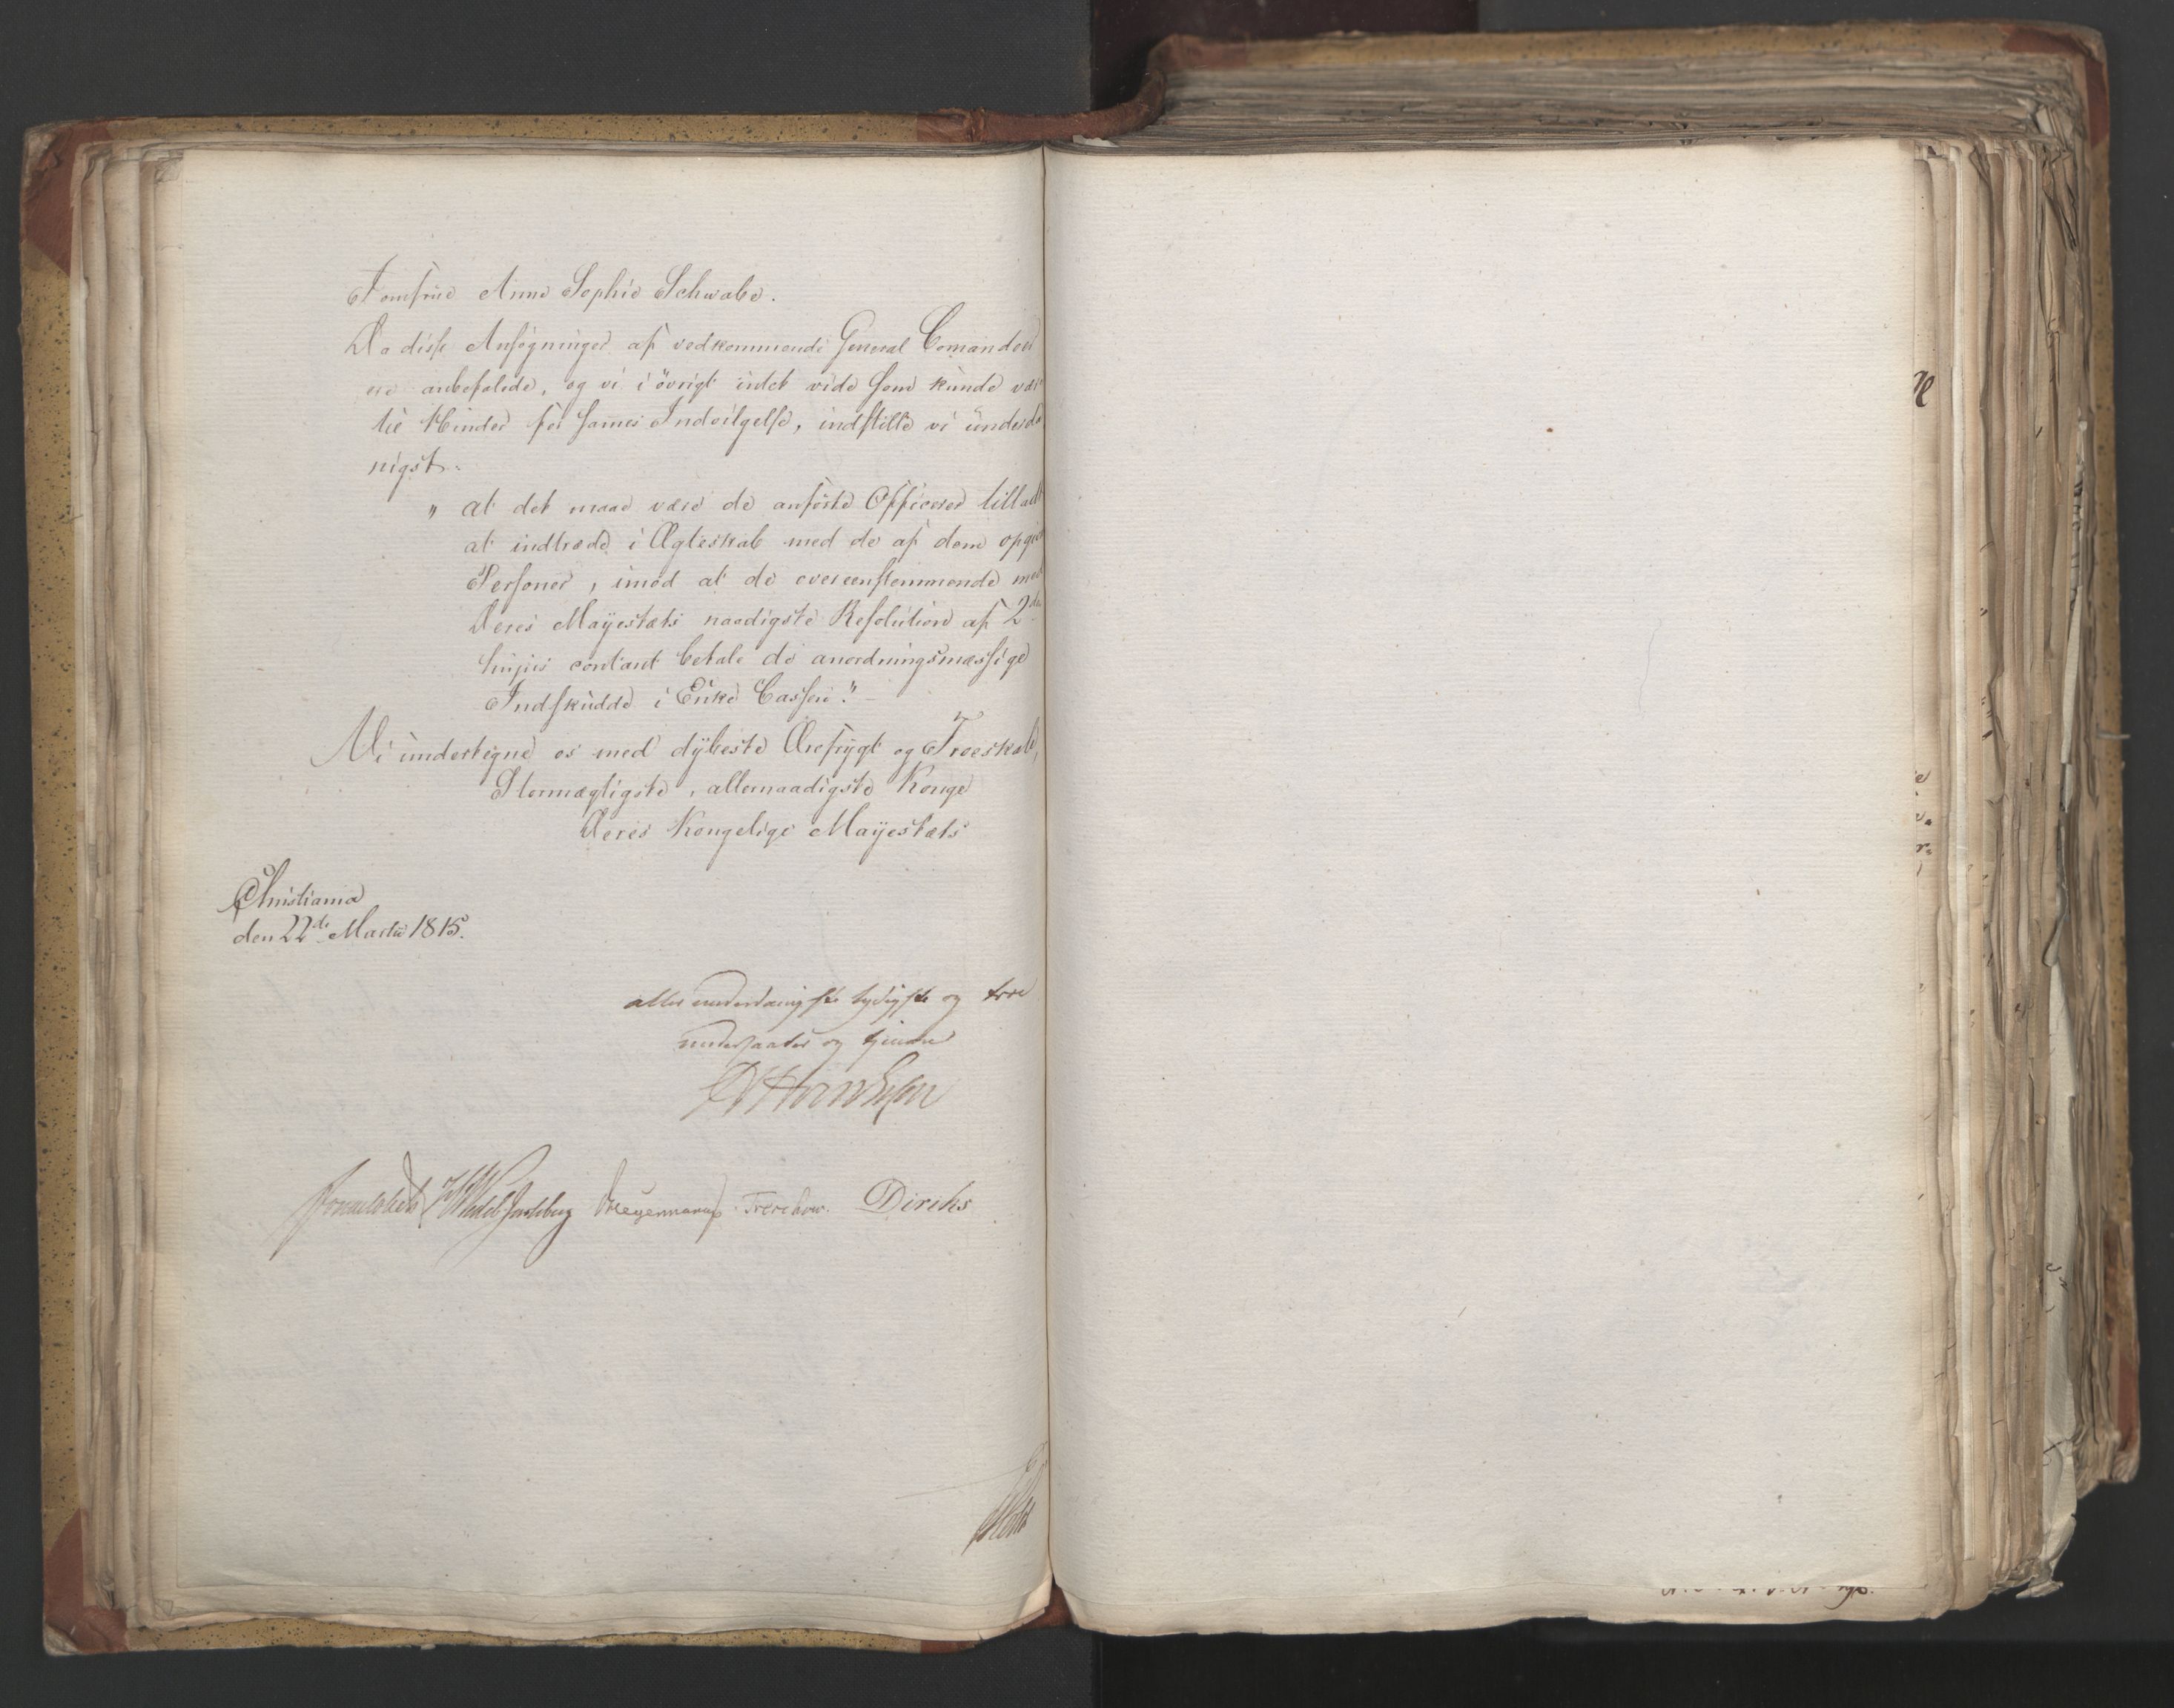 Jomfrue Anne Sophie Schwabe.
Da disse Ansøgninger af vedkommende General Comandoer
ere anbefalede, og vi i övrigt intet vide som kunde være
til Hinder for sammes Indvilgelse, indstille vi underda
nigst:
" at det maae være de anførte Officerer tilladt
at indtræde i Ægteskab med de af dem opgivne
Personer, imod at de overeensstemmende med
Deres Mayestæts naadigste Resolution af 2den
hujus contant betale de anordningsmæssige
Indskudde i Enke Cassen." -
Vi undertegne os med dybeste Ærefrygt og Troeskab,
Stormægtigste, allernaadigste Konge
Deres Kongelige Mayestæts
Christiania
den 22de Martii 1815.
allerunderdanigste lydigste og troe
undersaatter og tjenere
Sommerhielm HWedel Jarlsberg Treschow. Diriks